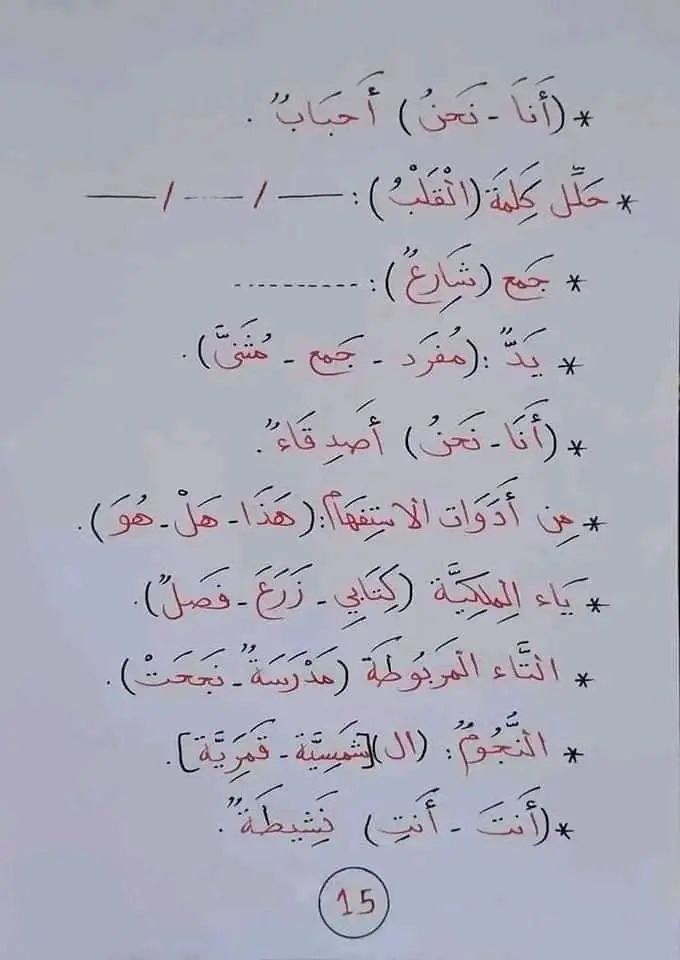 * (أَنَا - نَحنُ) أَحبَابٌ.
* حَلِّل كَلِمَة (الْقَلْبُ): —— / —-— / ——
* جَمع (شَارِعٌ): ............
* يَدٌ: (مُفرَد - جَمع - مُثَنَّى).
* (أَنَا - نَحنُ) أَصدِقَاءٌ.
* مِن أَدَوَات الاستِفهَام: (هَذَا - هَلْ - هُوَ).
* يَاء المِلكِيَّة (كِتَابِي - زَرَعَ - فَصلٌ).
* التَّاء المَربُوطَة (مَدْرَسَةٌ - نَجَحَتْ).
* النُّجُومُ: (ال) [شَمسِيَّة - قَمَرِيَّة].
* (أَنتَ - أَنتِ) نَشِيطَةٌ.
15